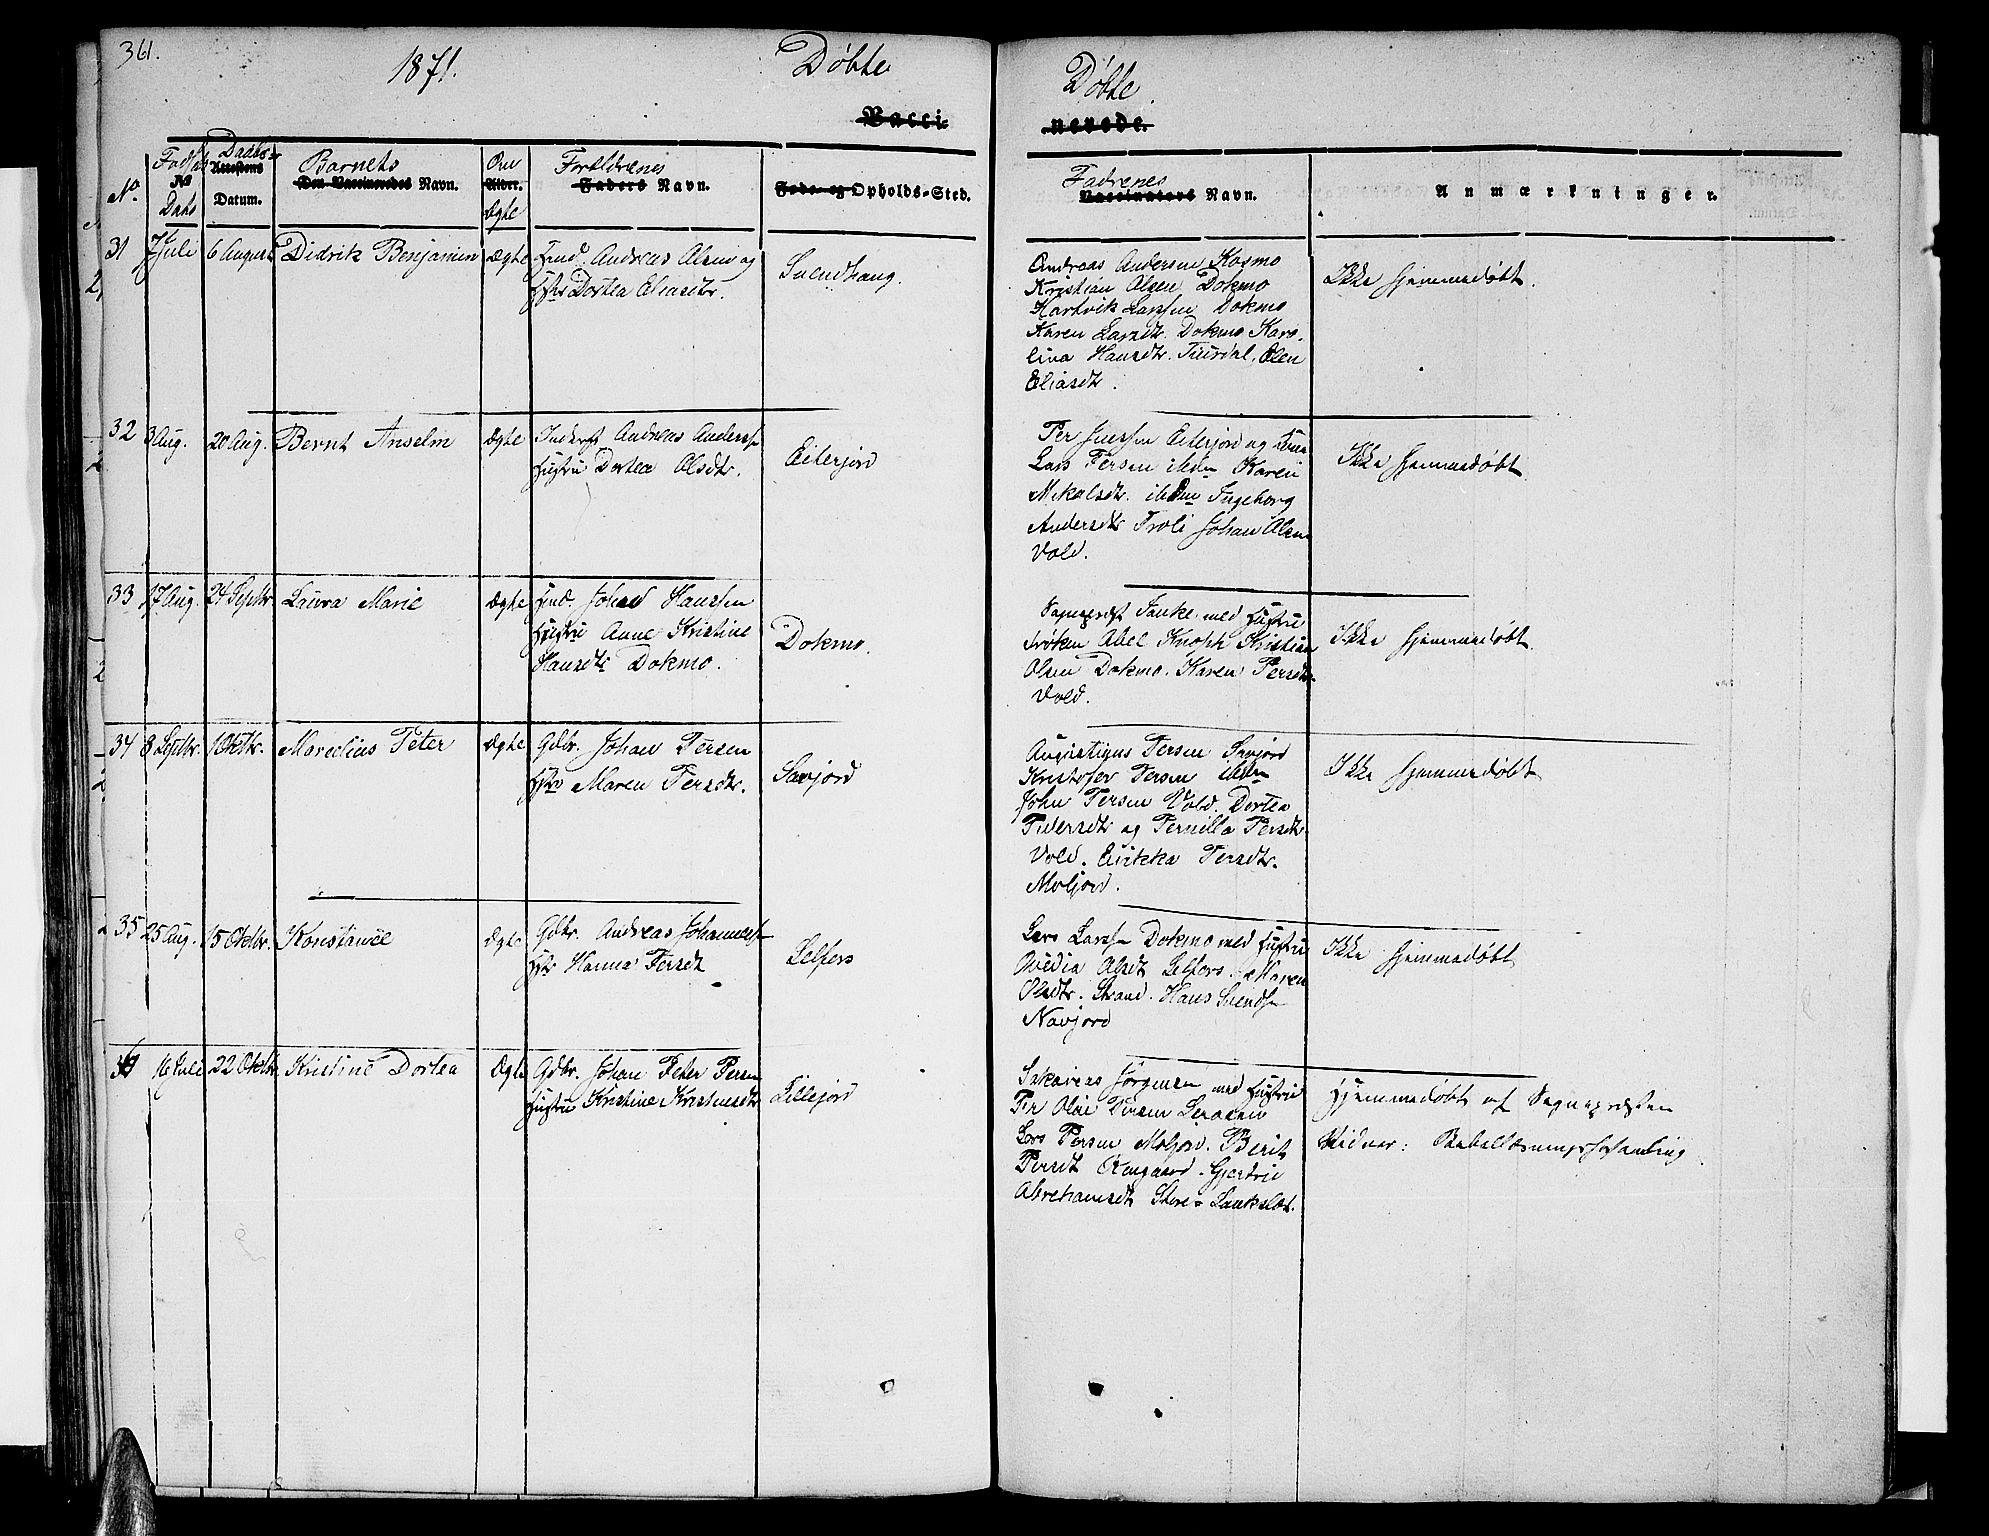 361.
1871.
Døbte
Døbte
Vacci-
nerede.
No.
Fødsels
No
Dato
Daabs-
Attestens
Datum.
Barnets
Den Vaccineredes Navn.
Om
Alder.
Ægte
Forældrenes
Faders Navn.
Føde- og Opholds-Sted.
Fadrenes
Vaccinators Navn.
Anmærkninger.
31
7 Juli
6 August
Didrik Benjamin
Ægte
Ind. Andreas Olsen og
Hstr Dortea Eliasdtr.
Svendhaug.
Andreas Andersen Kosmo
Kristian Olsen Dokmo
Hartvik Larssen Dokmo
Karen Larsdtr. Dokmo Karo-
lina Hansdtr. Tuvdal, Elen
Eliasdtr.
Ikke hjemmedøbt.
32
3 Aug.
20 Aug.
Bernt Anselm
Ægte
Inderst Andreas Anderss.
Hustru Dortea Olsdtr.
Eiterjord
Per Jenssen Eiterjord og
Lars Persen ibidm Karen
Mikalsdtr. ibidm Ingeborg
Andersdtr Troli Johan Olsen
Vold.
Ikke hjemmedøbt
33
17 Aug.
24 Septbr.
Laura Marie
Ægte
Ind. Johan Hanssen
Hustru Anne Kristine
Hansdtr Dokmo.
Dokmo.
Sognepræst Fanke med Hustru
Frøken Abel Knoph Kristian
Olsen Dokmo. Karen Persdtr
Vold.
Ikke hjemmedøbt.
34
8 Septbr.
1 Oktbr.
Marelius Peter
Ægte
Gdbr. Johan Persen
Hstr Maren Persdtr.
Savjord
Augustinus Persen Savjord
Kristofer Persen ibidm
John Persen Vold. Dortea
Pedersdtr og Pernilla Persdtr
Vold. Erikka Persdtr.
Moljord.
Ikke hjemmedøbt
35
25 Aug.
15 Oktbr.
Konstance
Ægte
Gdbr. Andreas Johanness.
Hstr Hanna Persdt
Selfors
Lars Larss. Dokmo med Hustru
Ovidia Olsdt Selfors. Maren
Olsdtr. Strand. Hans Svends.
Navjord
Ikke hjemmedøbt
36
16 Juli
22 Oktbr.
Kristine Dortea
Ægte
Gdbr. Johan Peter Persen
Hustru Kristine Kristensdtr
Lillejord
Sakarias Jørgensen med Hustru
Per Olai Persen
Lars Persen Moljord. Berit
Persdt Øvregaard. Gjertrud
Abrahamsdt Store-
Hjemmedøbt af Sognepræsten
Vidner: Bibellæsningsforsamling